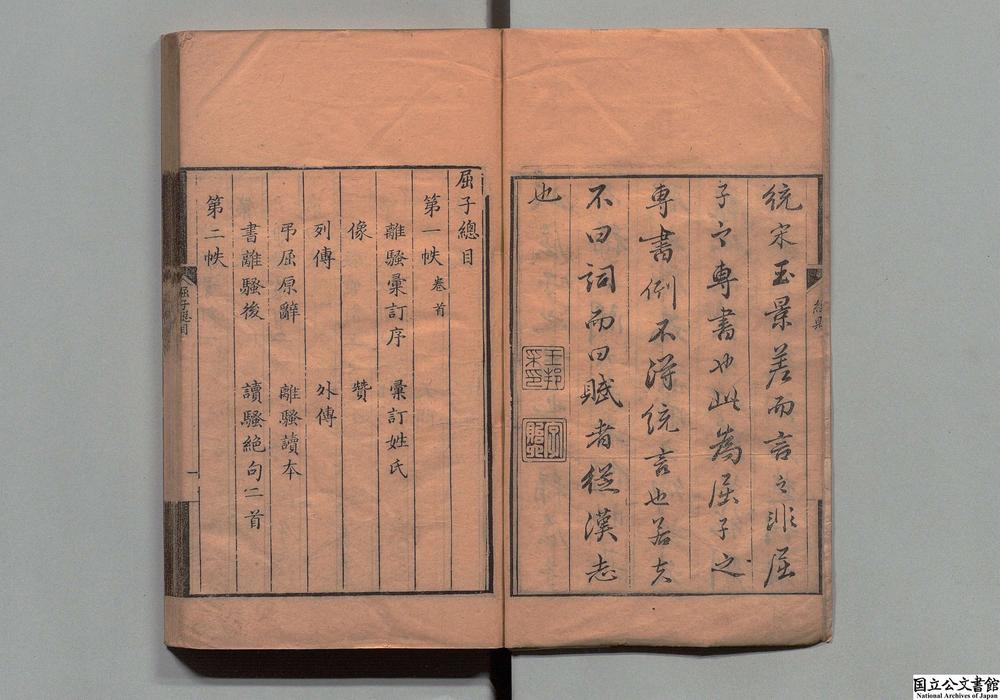 統宋玉景差而言之非屈
子之專書也此為屈子之
專書例不得統言也若夫
不曰詞而曰賦者從漢志
也
王邦采印
屈子總目
第一帙 卷首
離騷彙訂序 彙訂姓氏
像 贊
列傳 外傳
弔屈原辭 離騷讀本
書離騷後 讀騷絕句二首
第二帙
屈子總目
一
国立公文書館
National Archives of Japan